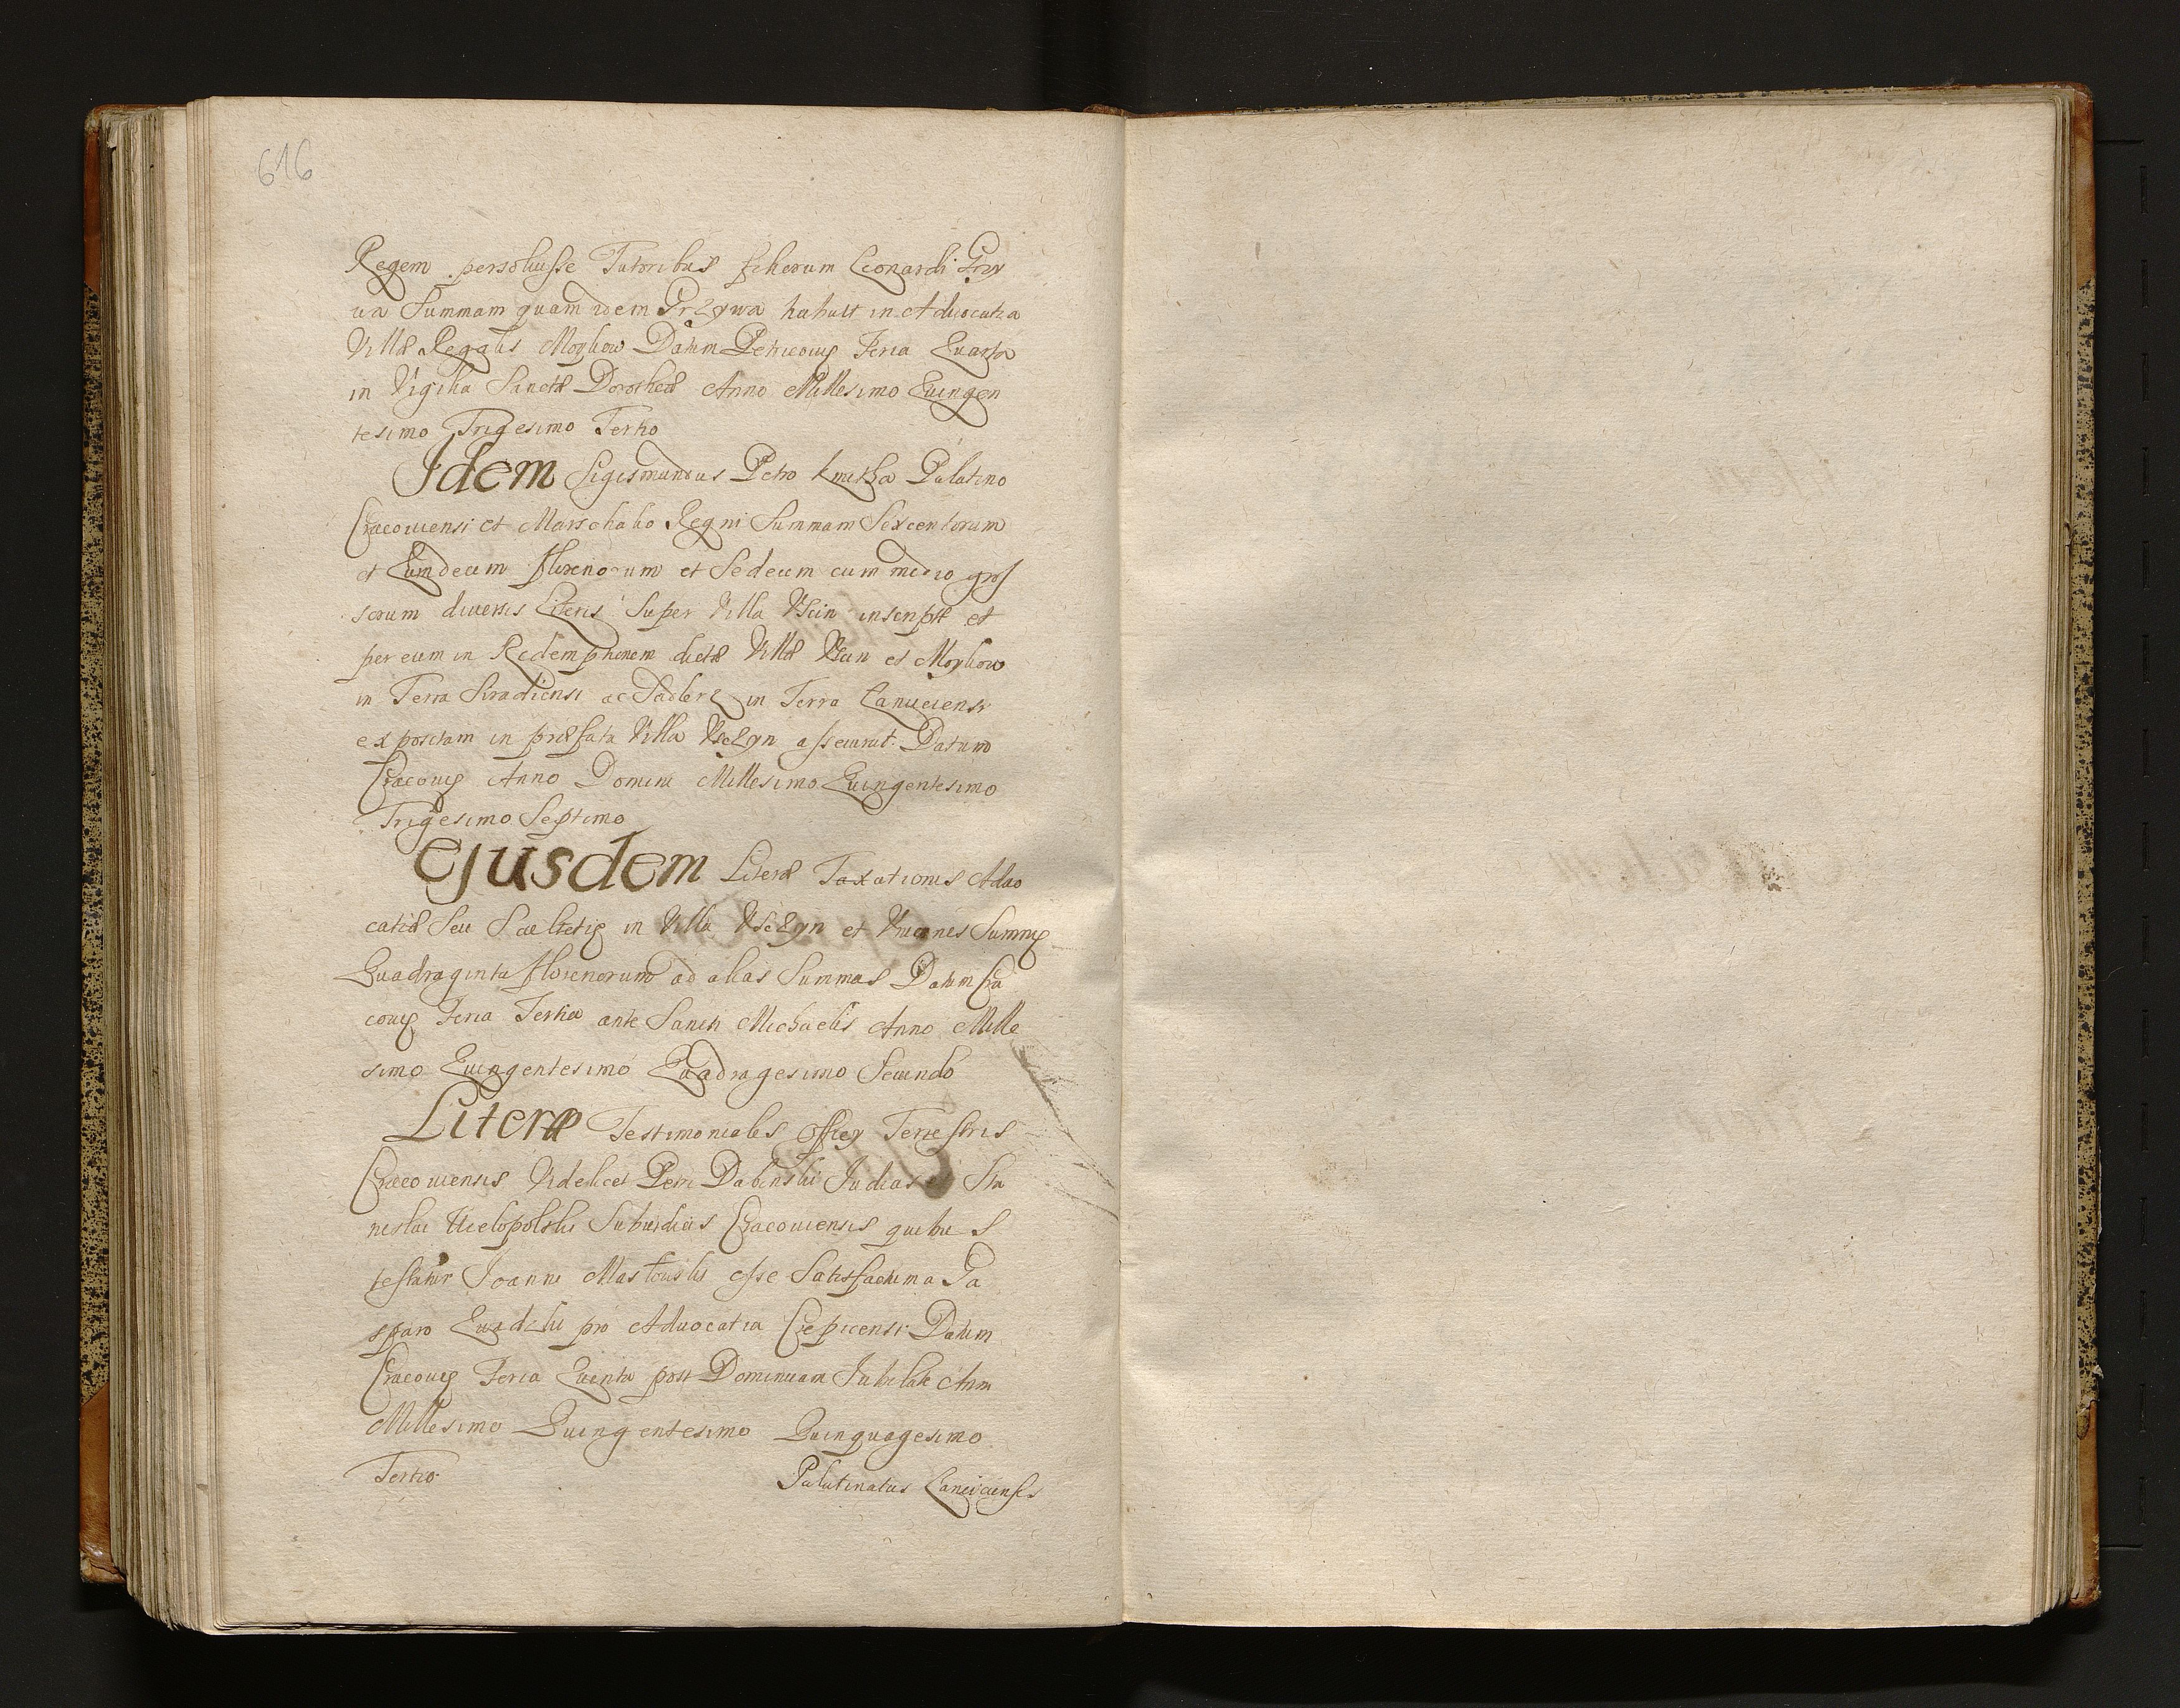 616
Regem persoluisse Tutoribus filiorum Leonardi Grzy
wa Summam quam idem Grzywa habuit in Aduocatia
Villæ Regalis Moykow Datum Petricouiæ Feria Quarta
in Vigilia Sanctæ Dorotheæ Anno Millesimo Quingen
tesimo Trigesimo Tertio
Idem Sigismundus Petro Kmitha Palatino
Cracouiensi et Marschalco Regni Summam Sexcentorum
et Quindecim florenorum et Sedecim cum medio gros
sorum diuersis Literis Super Villa Uscin inscript et
per eum in Redemptionem dictæ Villæ Uscin et Moykow
in Terra Siradiensi ac Sadlerz in Terra Lanciciensi
expositam in præfata Villa Usczyn assecurat. Datum
Cracouiæ Anno Domini Millesimo Quingentesimo
Trigesimo Septimo
Ejusdem Literæ Taxationis Aduo
catiæ Seu Scoltetiæ in Villa Usczyn et Summæ
Quadraginta florenorum ad alias Summas Datum Cra
couiæ Feria Tertia ante Sancti Michaelis Anno Mille
simo Quingentesimo Quadragesimo Secundo
Literæ Testimoniales Officy Terrestris
Cracouiensis Videlicet Petri Dabinski Judicis et Sta
nislai Wielopolski Subiudicis Cracouiensis quibus
testatur Joanni esse Satisfactum a Ga
sparo pro Aduocatia Crepicensi Datum
Cracouiæ Feria Quinta post Dominicam Jubilate Anno
Millesimo Quingentesimo Quinquagesimo
Tertio
Palatinatus Lanciciensis